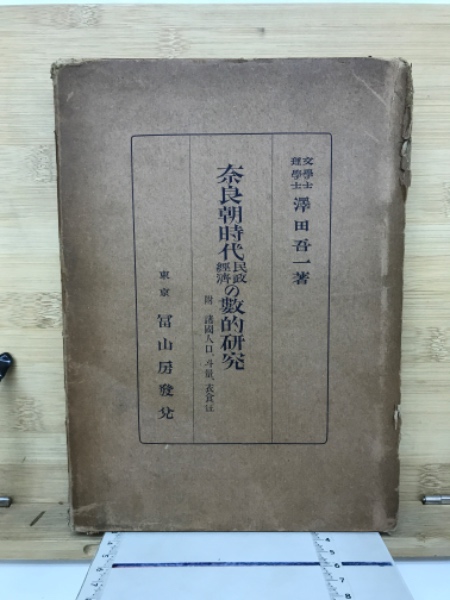 文學士
理學士
澤田吾一著
奈良朝時代民政經濟の數的硏究
附 諸國人口、斗量、衣食住
東京 冨山房發兌